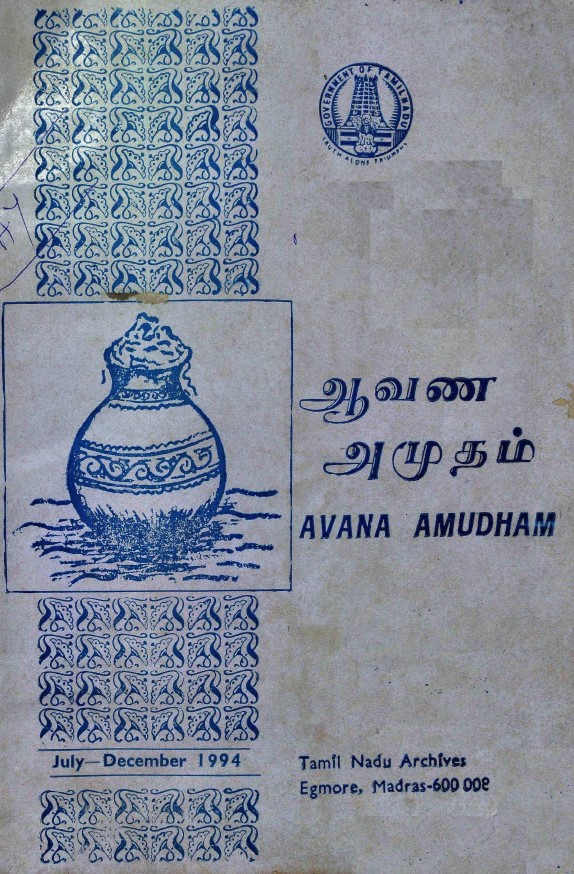 GOVERNMENT OF TAMILNADU
TRUTH ALONE TRIUMPHS
ஆவண
அமுதம்
AVANA AMUDHAM
July—December 1994
Tamil Nadu Archives
Egmore, Madras-600 008